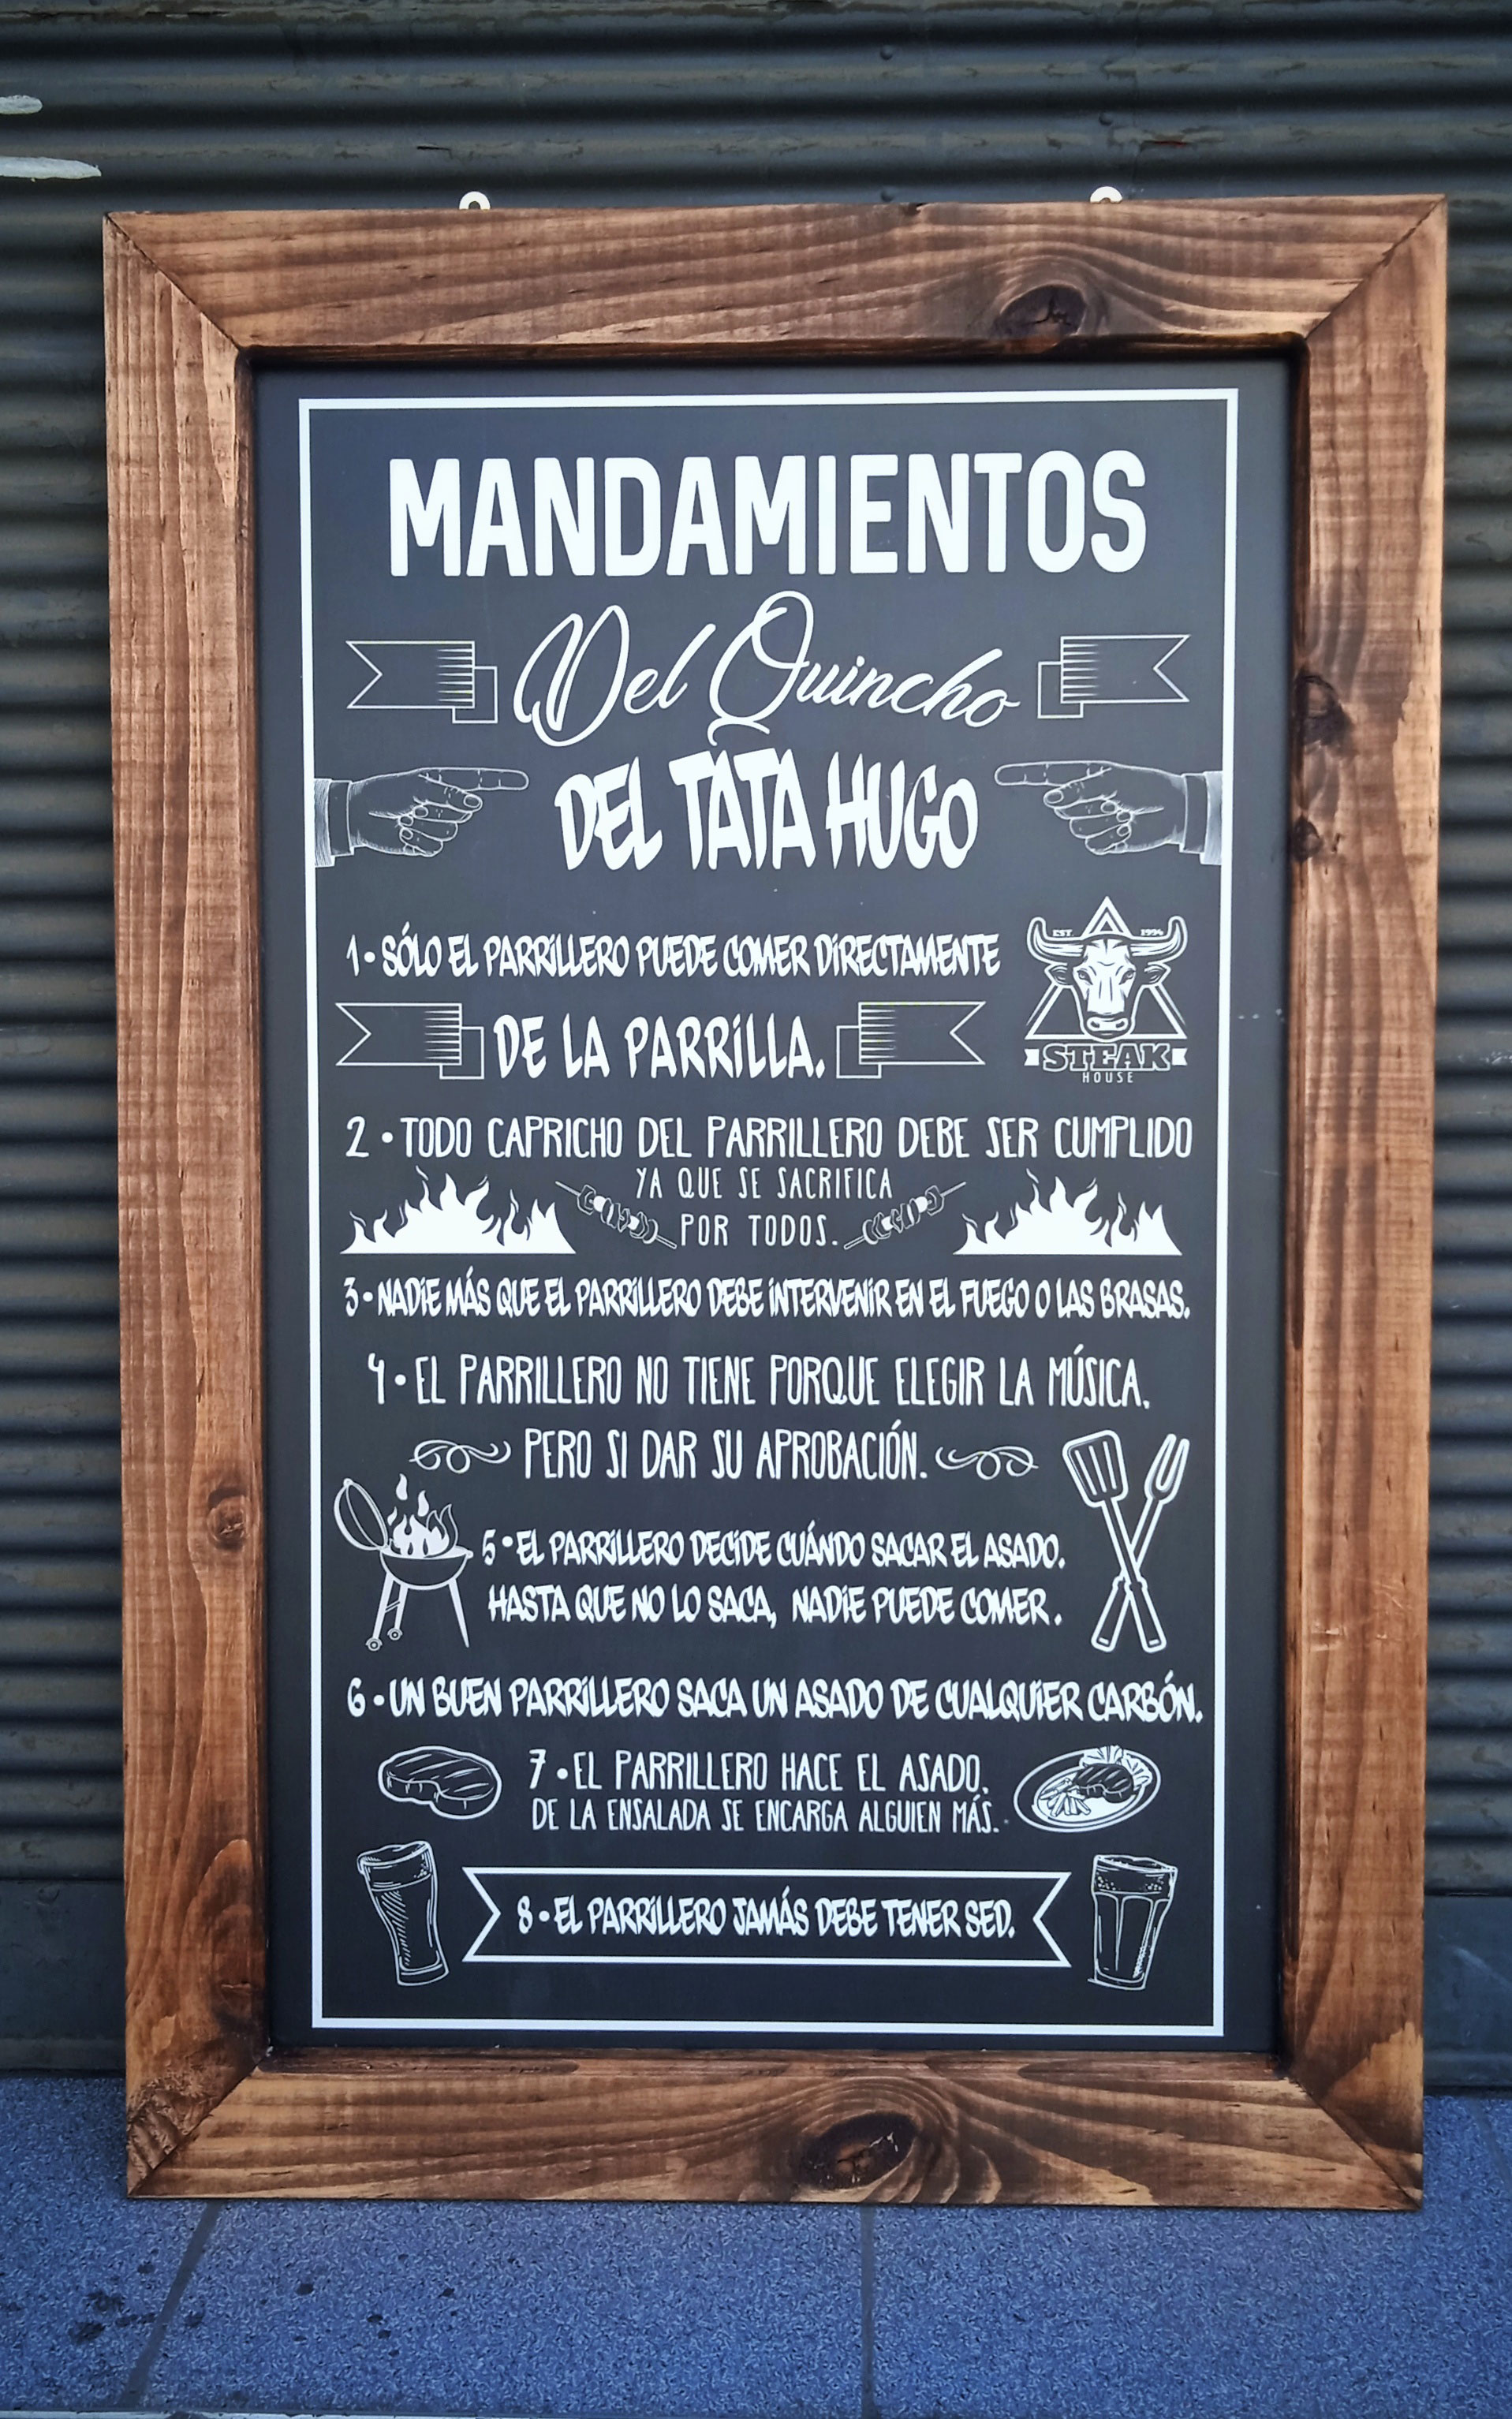 MANDAMIENTOS
Del Quincho
DEL TATA HUGO
1•SÓLO EL PARRILLERO PUEDE COMER DIRECTAMENTE
DE LA PARRILLA.
EST. 1994
STEAK
HOUSE
2•TODO CAPRICHO DEL PARRILLERO DEBE SER CUMPLIDO
YA QUE SE SACRIFICA
POR TODOS.
3•NADIE MÁS QUE EL PARRILLERO DEBE INTERVENIR EN EL FUEGO O LAS BRASAS.
4•EL PARRILLERO NO TIENE PORQUE ELEGIR LA MÚSICA,
PERO SI DAR SU APROBACIÓN.
5•EL PARRILLERO DECIDE CUÁNDO SACAR EL ASADO.
HASTA QUE NO LO SACA, NADIE PUEDE COMER.
6•UN BUEN PARRILLERO SACA UN ASADO DE CUALQUIER CARBÓN.
7•EL PARRILLERO HACE EL ASADO,
DE LA ENSALADA SE ENCARGA ALGUIEN MÁS.
8•EL PARRILLERO JAMÁS DEBE TENER SED.